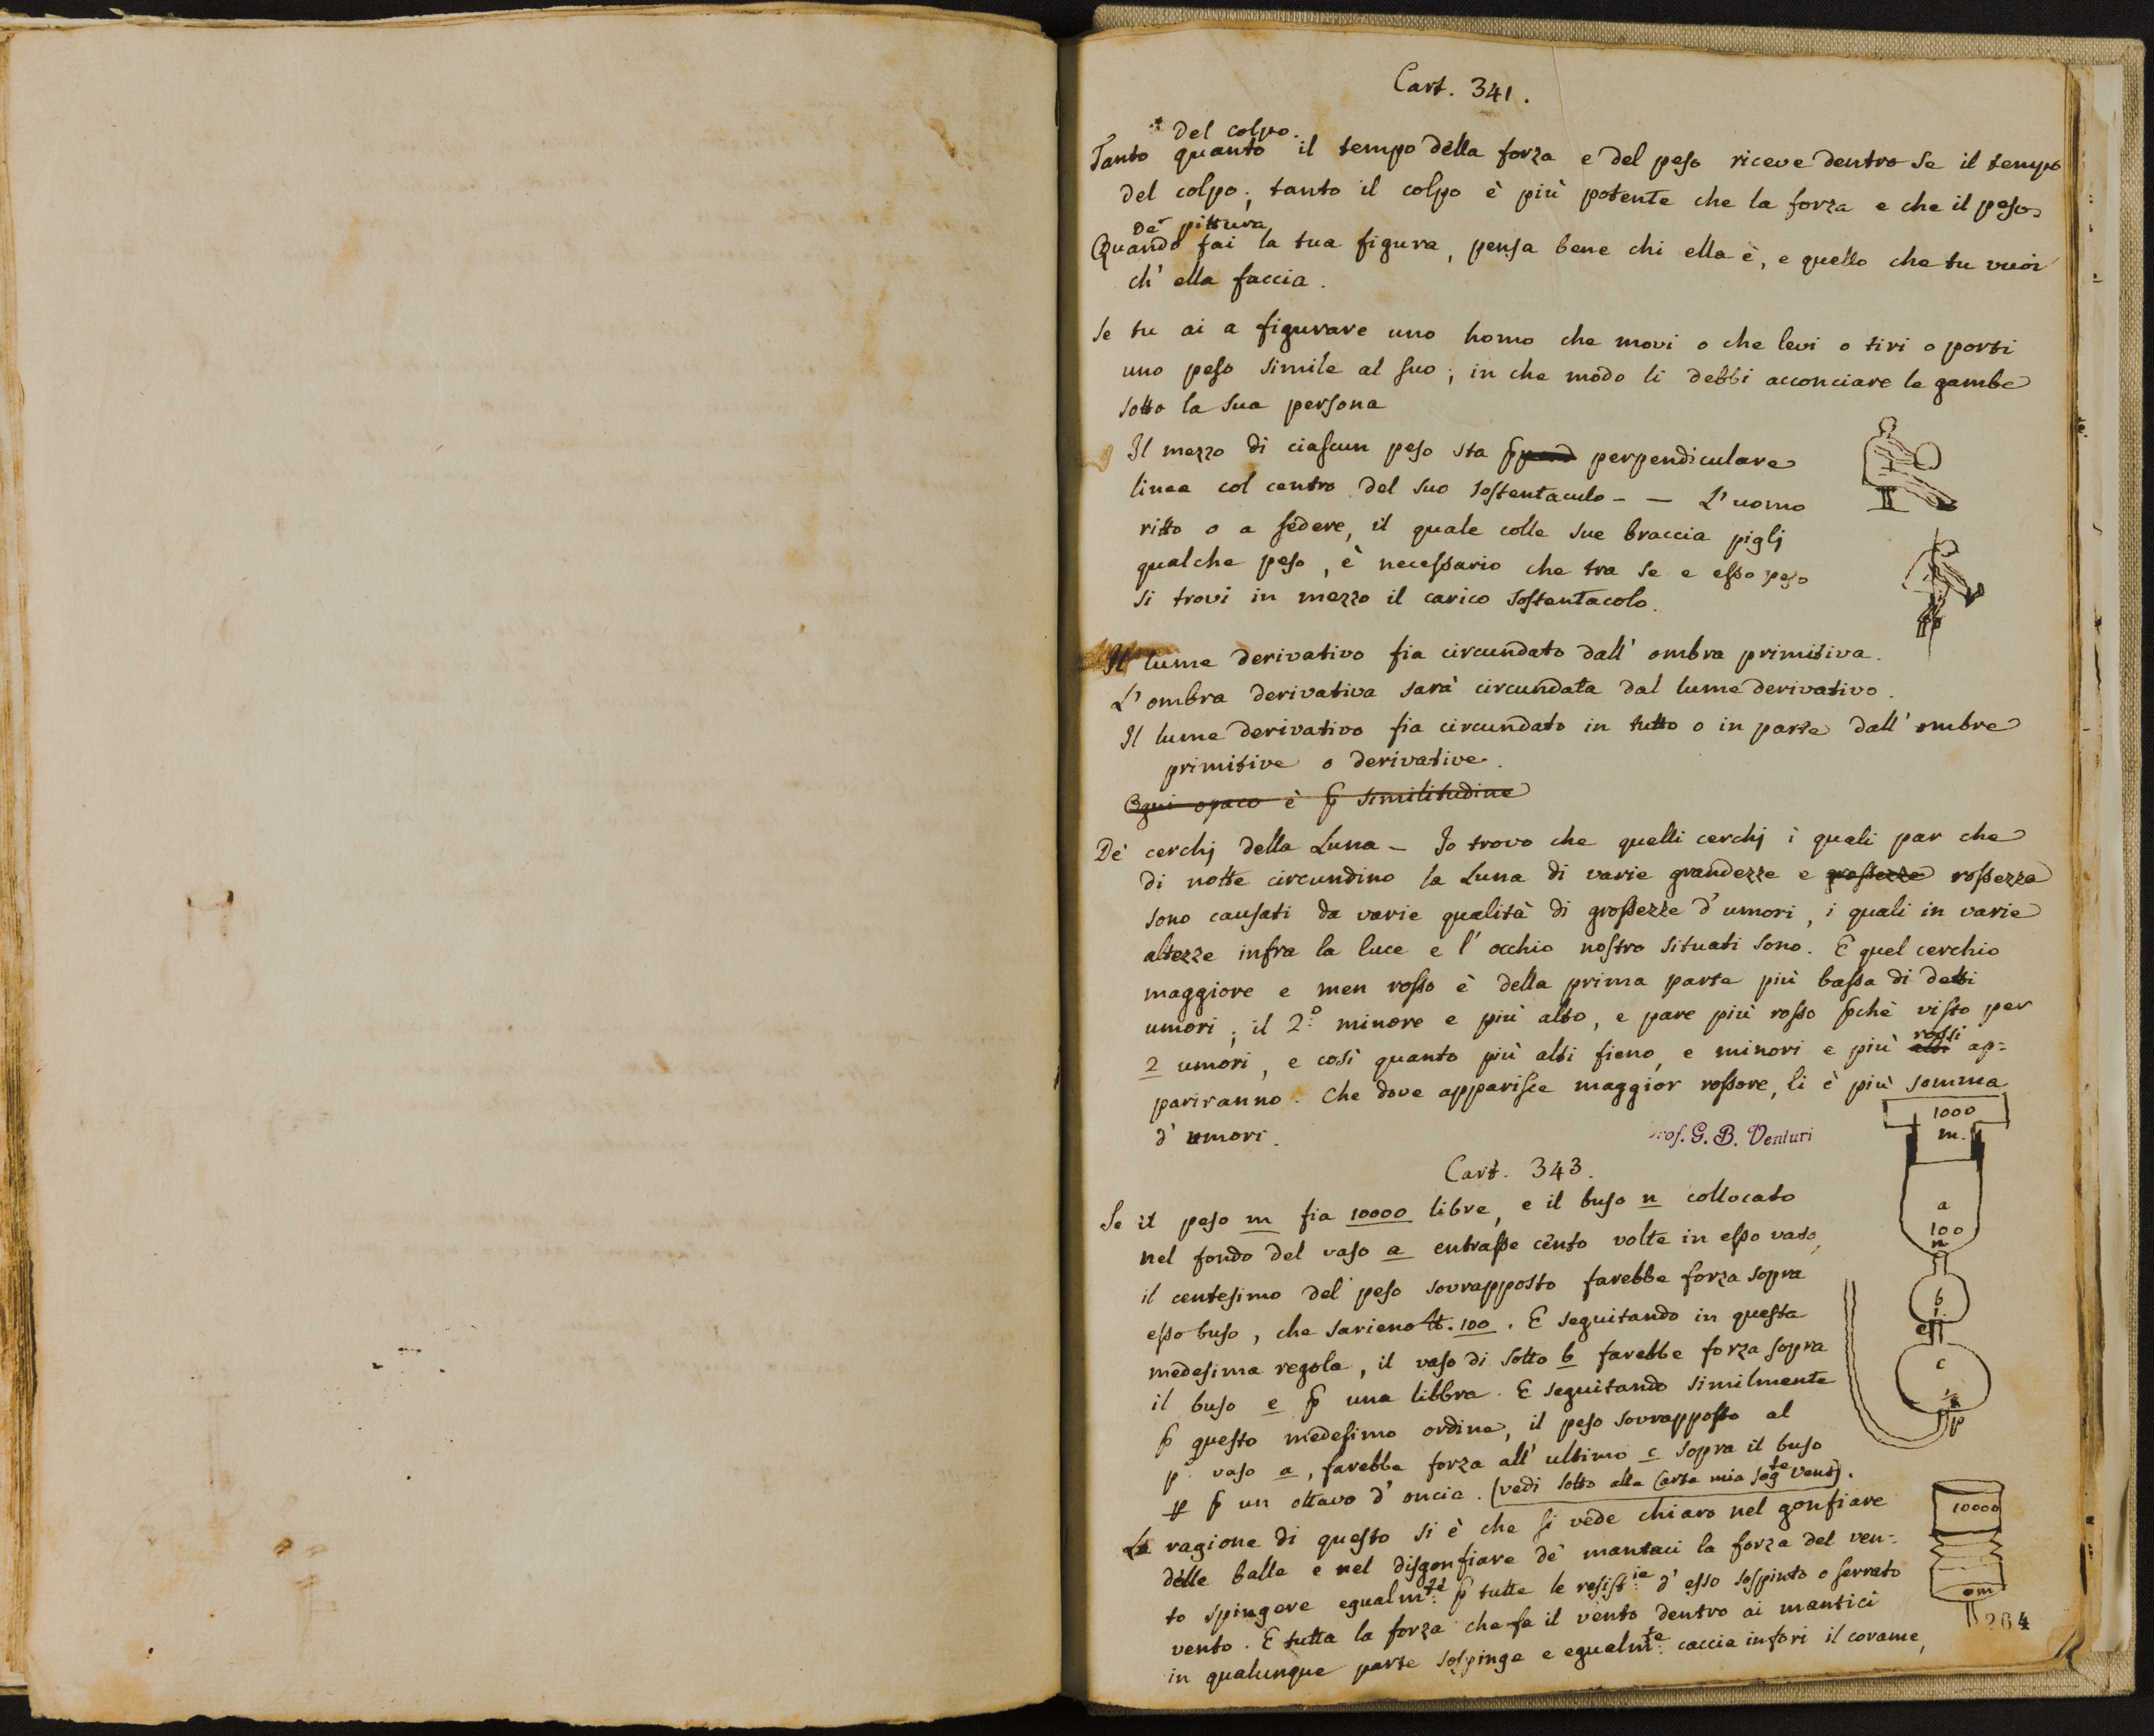 Cart. 341.
Del colpo.
Tanto quanto il tempo della forza e del peso riceve dentro se il tempo
del colpo; tanto il colpo è più potente che la forza e che il peso
De pittura
Quando fai la tua figura, pensa bene chi ella è, e quello che tu vuoi
ch' ella faccia.
Se tu ai a figurare uno homo che movi o che levi o tiri o porti
uno peso simile al suo; in che modo li debbi acconciare le gambe
sotto la sua persona
Il mezzo di ciascun peso sta perpendiculare
linea col centro del suo sostentaculo - — L'uomo
ritto o a sedere, il quale colle sue braccia piglj
qualche peso, è necessario che tra se e esso peso
si trovi in mezzo il carico sostentacolo.
Il lume derivativo fia circundato dall' ombra primitiva.
L'ombra derivativa sarà circundata dal lume derivativo.
Il lume derivativo fia circundato in tutto o in parte dall' ombre
primitive o derivative.
Ogni opaco è p similitudine
De' cerchj della Luna - Io trovo che quelli cerchj i quali par che
di notte circundino la Luna di varie grandezze e grossezze rossezza
sono causati da varie qualità di grossezze d'umori, i quali in varie
altezze infra la luce e l' occhio nostro situati sono. E quel cerchio
maggiore e men rosso è della prima parte più bassa di detti
umori; il 2.º minore e più alto, e pare più rosso pchè visto per
2 umori, e così quanto più alti fieno, e minori e più alti rossi ap=
pariranno. Che dove apparisce maggior rossore, li è più somma
d' umori.
Prof. G. B. Venturi
1000
m.
Cart. 343.
Se il peso m fia 10000 libre, e il buso n collocato
nel fondo del vaso a entrasse cento volte in esso vaso,
il centesimo del peso sovrapposto farebbe forza sopra
esso buso, che sarieno lt. 100. E seguitando in questa
medesima regola, il vaso di sotto b farebbe forza sopra
il buso e p una libbra. E seguitando similmente
p questo medesimo ordine, il peso sovrapposto al
pº vaso a, farebbe forza all' ultimo c sopra il buso
p p un ottavo d' oncia. (vedi sotto alla Carta mia segte vent).
La ragione di questo si è che si vede chiaro nel gonfiare
delle balle e nel disgonfiare de' mantaci la forza del ven-
to spingere egualmte p tutte le resistie d' esso sospinto o serrato
vento. E tutta la forza che fa il vento dentro ai mantici
in qualunque parte sospinge e egualmte caccia infori il corame,
a
100
n
b
e
c
p
10000
m
264